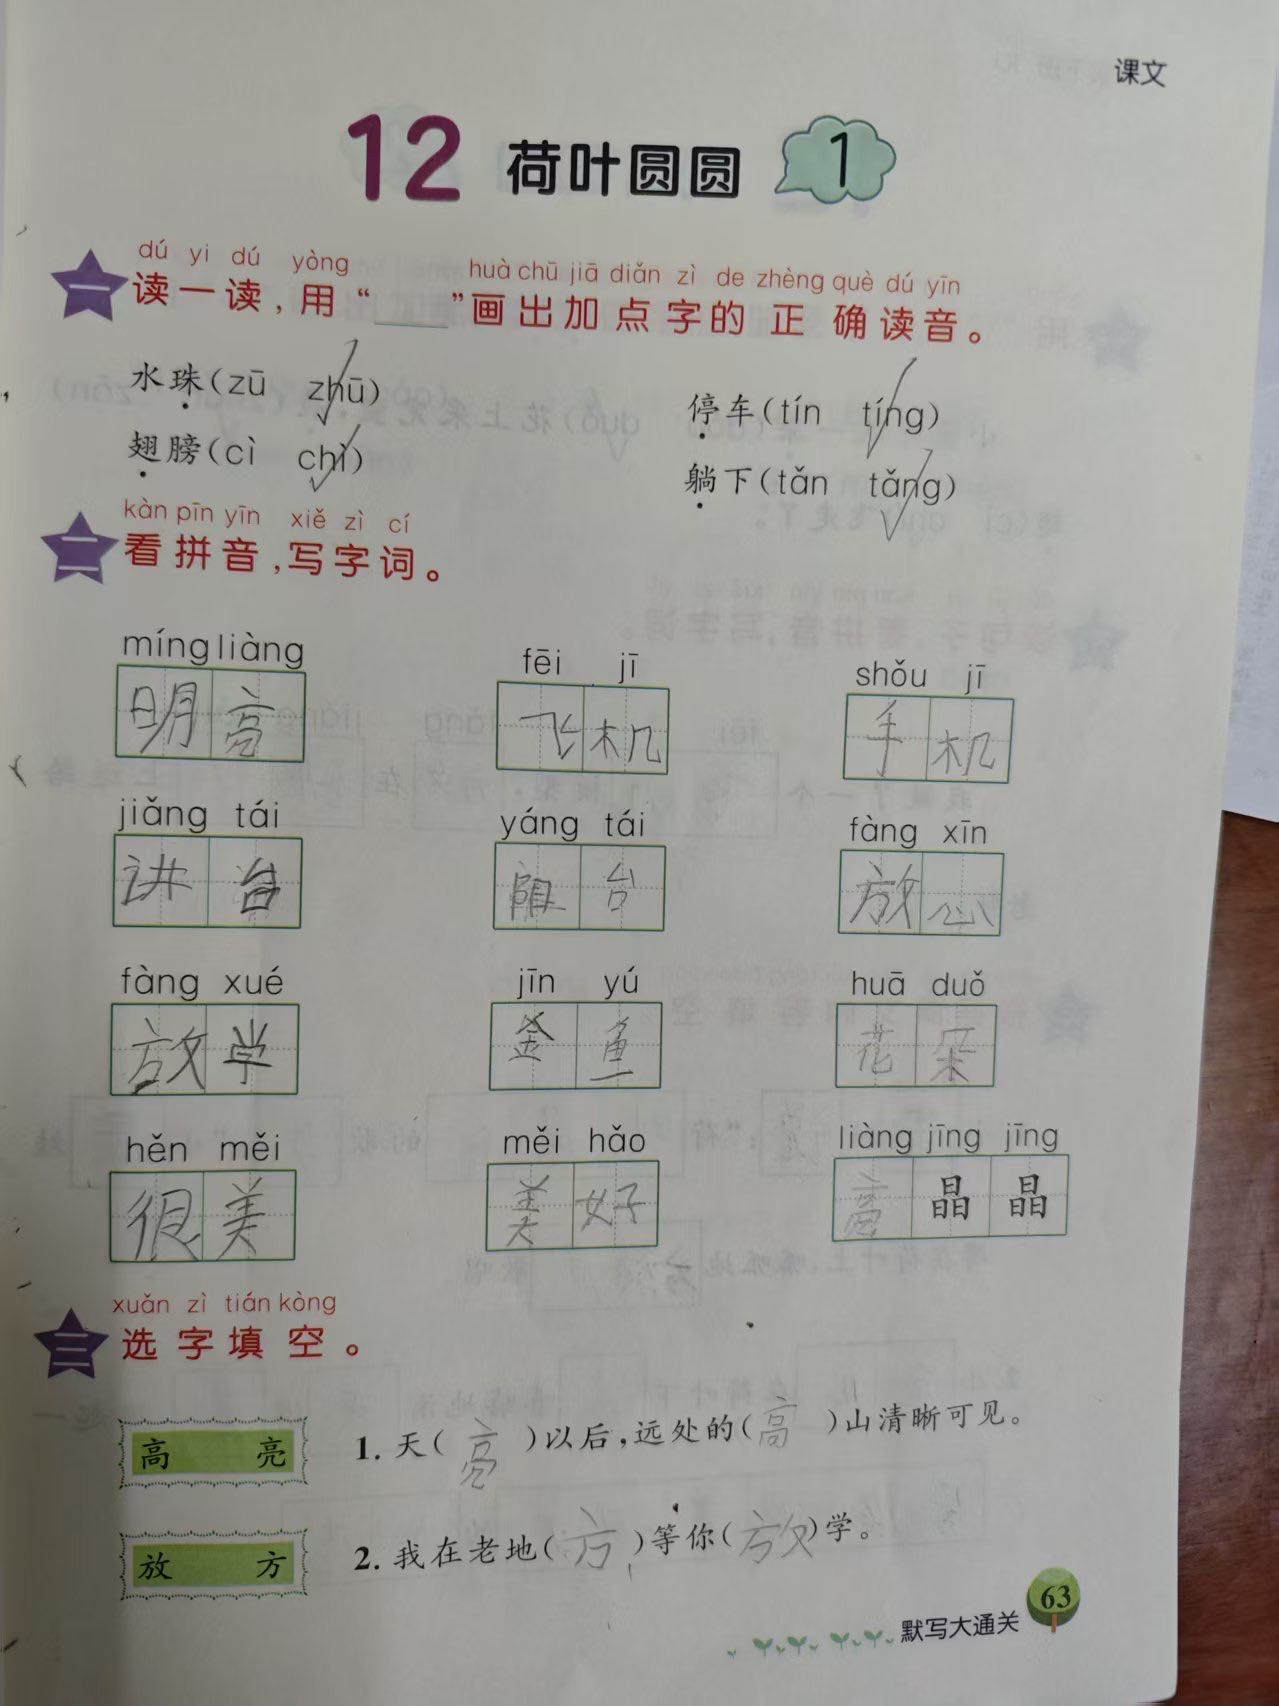 课文
12 荷叶圆圆 1
dú yi dú yòng huà chū jiā diǎn zì de zhèng què dú yīn
一 读一读，用“____”画出加点字的正确读音。
水珠(zū zhū) 停车(tín tíng)
翅膀(cì chì) 躺下(tǎn tǎng)
kàn pīn yīn xiě zì cí
二 看拼音，写字词。
míng liàng fēi jī shǒu jī
明亮 飞机 手机
jiǎng tái yáng tái fàng xīn
讲台 阳台 放心
fàng xué jīn yú huā duǒ
放学 金鱼 花朵
hěn měi měi hǎo liàng jīng jīng
很美 美好 亮晶晶
xuǎn zì tián kòng
三 选字填空。
高 亮 1. 天(亮)以后，远处的(高)山清晰可见。
放 方 2. 我在老地(方)等你(放)学。
63
默写大通关